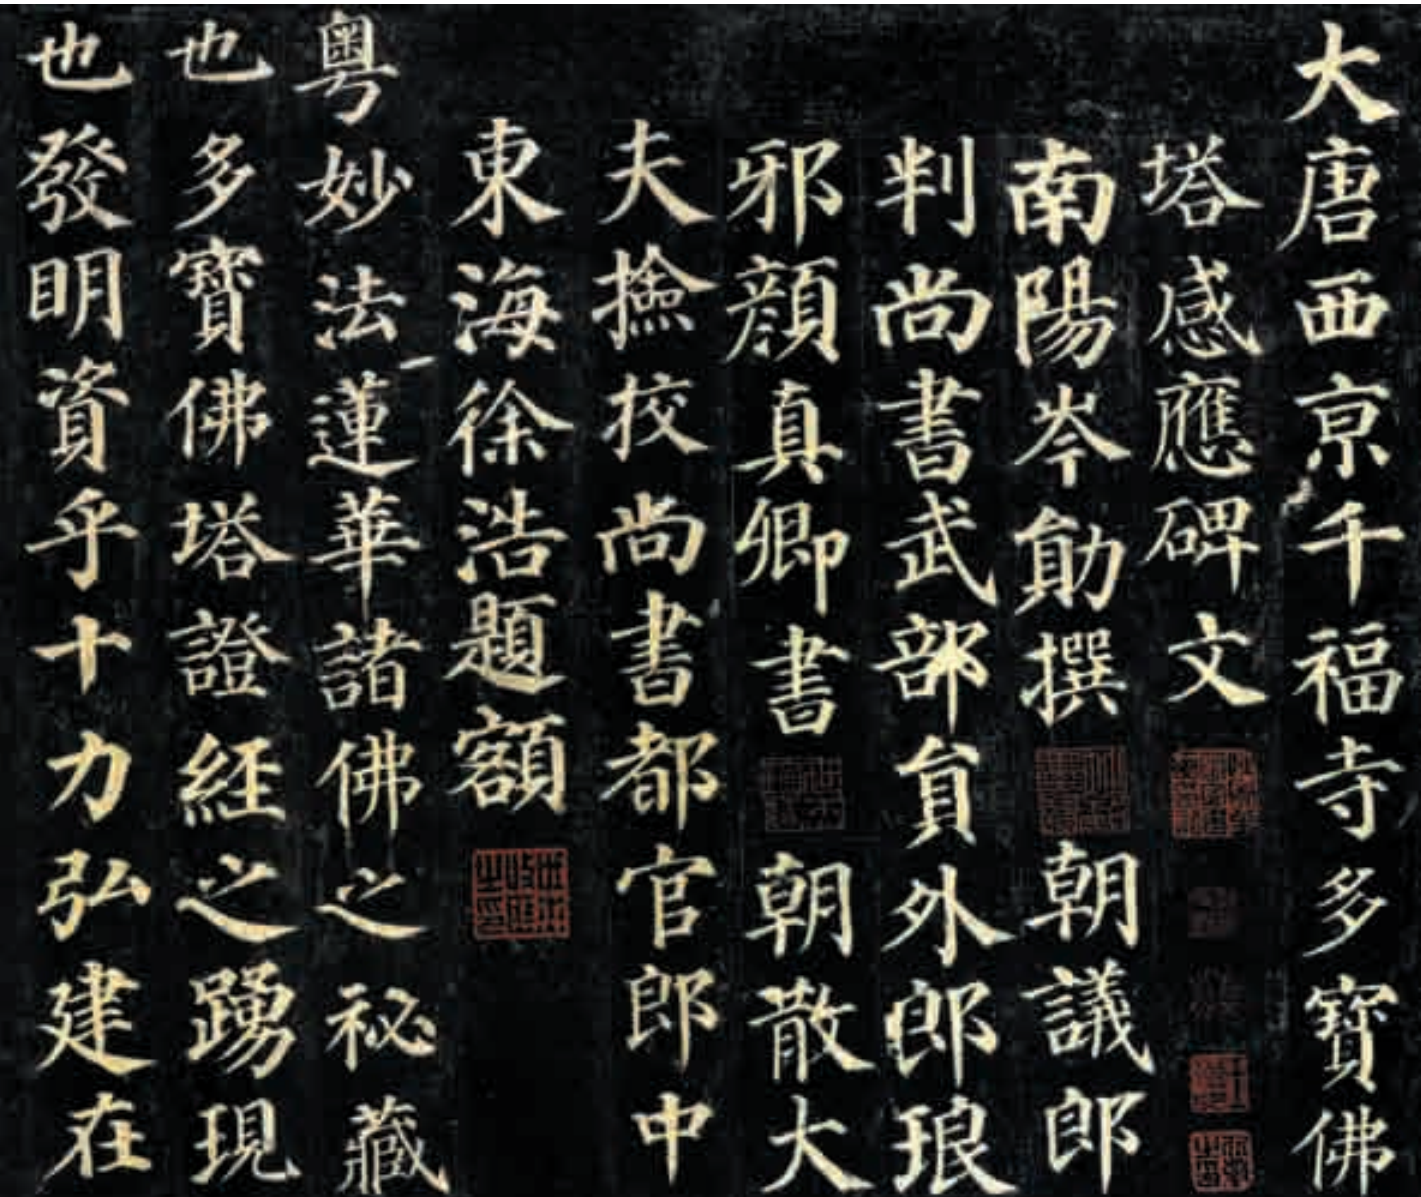 大唐西京千福寺多寶佛
塔感應碑文
南陽岑勛撰朝議郎
判尚書武部員外郎琅
邪顏真卿書朝散大
夫撿挍尚書都官郎中
東海徐浩題額
粵妙法蓮華諸佛之祕藏
也多寶佛塔證經之踴現
也發明資乎十力弘建在